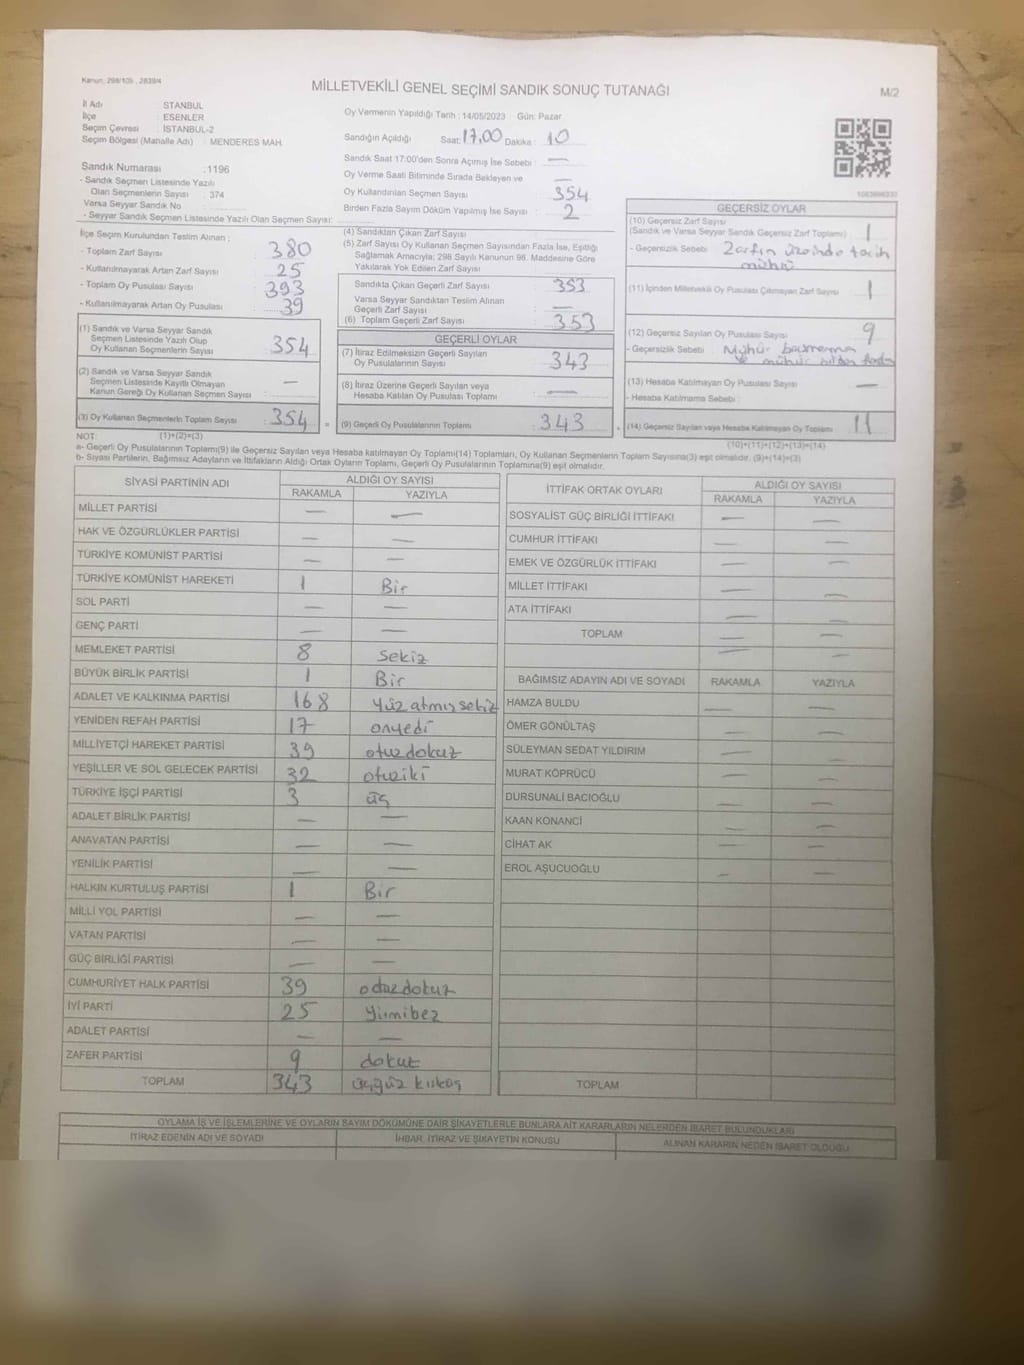 Kanun: 298/105 , 2839/4
MİLLETVEKİLİ GENEL SEÇİMİ SANDIK SONUÇ TUTANAĞI
M/2
İl Adı : STANBUL
İlçe : ESENLER
Seçim Çevresi : İSTANBUL-2
Seçim Bölgesi (Mahalle Adı) : MENDERES MAH.
Sandık Numarası : 1196
- Sandık Seçmen Listesinde Yazılı
Olan Seçmenlerin Sayısı : 374
Varsa Seyyar Sandık No :
- Seyyar Sandık Seçmen Listesinde Yazılı Olan Seçmen Sayısı:
Oy Vermenin Yapıldığı Tarih : 14/05/2023 Gün: Pazar
Sandığın Açıldığı Saat: 17.00 Dakika : 10
Sandık Saat 17:00'den Sonra Açımış İse Sebebi : —
Oy Verme Saati Bitiminde Sırada Bekleyen ve —
Oy Kullandırılan Seçmen Sayısı 354
Birden Fazla Sayım Döküm Yapılmış İse Sayısı : 2
1083698330
İlçe Seçim Kurulundan Teslim Alınan ;
- Toplam Zarf Sayısı : 380
- Kullanılmayarak Artan Zarf Sayısı : 25
- Toplam Oy Pusulası Sayısı : 393
- Kullanılmayarak Artan Oy Pusulası : 39
(1) Sandık ve Varsa Seyyar Sandık
Seçmen Listesinde Yazılı Olup
Oy Kullanan Seçmenlerin Sayısı : 354
(2) Sandık ve Varsa Seyyar Sandık
Seçmen Listesinde Kayıtlı Olmayan —
Kanun Gereği Oy Kullanan Seçmen Sayısı :
(3) Oy Kullanan Seçmenlerin Toplam Sayısı : 354 =
(4) Sandıktan Çıkan Zarf Sayısı
(5) Zarf Sayısı Oy Kullanan Seçmen Sayısından Fazla İse, Eşitliği
Sağlamak Amacıyla; 298 Sayılı Kanunun 98. Maddesine Göre
Yakılarak Yok Edilen Zarf Sayısı :
Sandıkta Çıkan Geçerli Zarf Sayısı : 353
Varsa Seyyar Sandıktan Teslim Alınan
Geçerli Zarf Sayısı : —
(6) Toplam Geçerli Zarf Sayısı : 353
GEÇERLİ OYLAR
(7) İtiraz Edilmeksizin Geçerli Sayılan
Oy Pusulalarının Sayısı : 343
(8) İtiraz Üzerine Geçerli Sayılan veya
Hesaba Katılan Oy Pusulası Toplamı : —
(9) Geçerli Oy Pusulalarının Toplamı : 343
GEÇERSİZ OYLAR
(10) Geçersiz Zarf Sayısı
(Sandık ve Varsa Seyyar Sandık Geçersiz Zarf Toplamı) : 1
- Geçersizlik Sebebi : Zarfın üzerinde tarih
mührü
(11) İçinden Milletvekili Oy Pusulası Çıkmayan Zarf Sayısı : 1
(12) Geçersiz Sayılan Oy Pusulası Sayısı : 9
- Geçersizlik Sebebi : Mühür basmama
ve mühür birden fazla
(13) Hesaba Katılmayan Oy Pusulası Sayısı : —
- Hesaba Katılmama Sebebi :
+ (14) Geçersiz Sayılan veya Hesaba Katılmayan Oy Toplamı : 11
NOT: (1)+(2)=(3)
(10)+(11)+(12)+(13)=(14)
a- Geçerli Oy Pusulalarının Toplamı(9) ile Geçersiz Sayılan veya Hesaba katılmayan Oy Toplamı(14) Toplamları, Oy Kullanan Seçmenlerin Toplam Sayısına(3) eşit olmalıdır. (9)+(14)=(3)
b- Siyasi Partilerin, Bağımsız Adayların ve İttifakların Aldığı Ortak Oyların Toplamı, Geçerli Oy Pusulalarının Toplamına(9) eşit olmalıdır.
SİYASİ PARTİNİN ADI ALDIĞI OY SAYISI
RAKAMLA YAZIYLA
MİLLET PARTİSİ — —
HAK VE ÖZGÜRLÜKLER PARTİSİ — —
TÜRKİYE KOMÜNİST PARTİSİ — —
TÜRKİYE KOMÜNİST HAREKETİ 1 Bir
SOL PARTİ — —
GENÇ PARTİ — —
MEMLEKET PARTİSİ 8 sekiz
BÜYÜK BİRLİK PARTİSİ 1 Bir
ADALET VE KALKINMA PARTİSİ 168 yüz atmış sekiz
YENİDEN REFAH PARTİSİ 17 onyedi
MİLLİYETÇİ HAREKET PARTİSİ 39 otuzdokuz
YEŞİLLER VE SOL GELECEK PARTİSİ 32 otuziki
TÜRKİYE İŞÇİ PARTİSİ 3 üç
ADALET BİRLİK PARTİSİ — —
ANAVATAN PARTİSİ — —
YENİLİK PARTİSİ — —
HALKIN KURTULUŞ PARTİSİ 1 Bir
MİLLİ YOL PARTİSİ — —
VATAN PARTİSİ — —
GÜÇ BİRLİĞİ PARTİSİ — —
CUMHURİYET HALK PARTİSİ 39 otuzdokuz
İYİ PARTİ 25 yirmibeş
ADALET PARTİSİ — —
ZAFER PARTİSİ 9 dokuz
TOPLAM 343 üçyüz kırküç
İTTİFAK ORTAK OYLARI ALDIĞI OY SAYISI
RAKAMLA YAZIYLA
SOSYALİST GÜÇ BİRLİĞİ İTTİFAKI — —
CUMHUR İTTİFAKI — —
EMEK VE ÖZGÜRLÜK İTTİFAKI — —
MİLLET İTTİFAKI — —
ATA İTTİFAKI — —
TOPLAM — —
— —
BAĞIMSIZ ADAYIN ADI VE SOYADI RAKAMLA YAZIYLA
HAMZA BULDU — —
ÖMER GÖNÜLTAŞ — —
SÜLEYMAN SEDAT YILDIRIM — —
MURAT KÖPRÜCÜ — —
DURSUNALİ BACIOĞLU — —
KAAN KONANCİ — —
CİHAT AK — —
EROL AŞUCUOĞLU — —
TOPLAM
OYLAMA İŞ VE İŞLEMLERİNE VE OYLARIN SAYIM DÖKÜMÜNE DAİR ŞİKAYETLERLE BUNLARA AİT KARARLARIN NELERDEN İBARET BULUNDUKLARI
İTİRAZ EDENİN ADI VE SOYADI İHBAR, İTİRAZ VE ŞİKAYETİN KONUSU ALINAN KARARIN NEDEN İBARET OLDUĞU